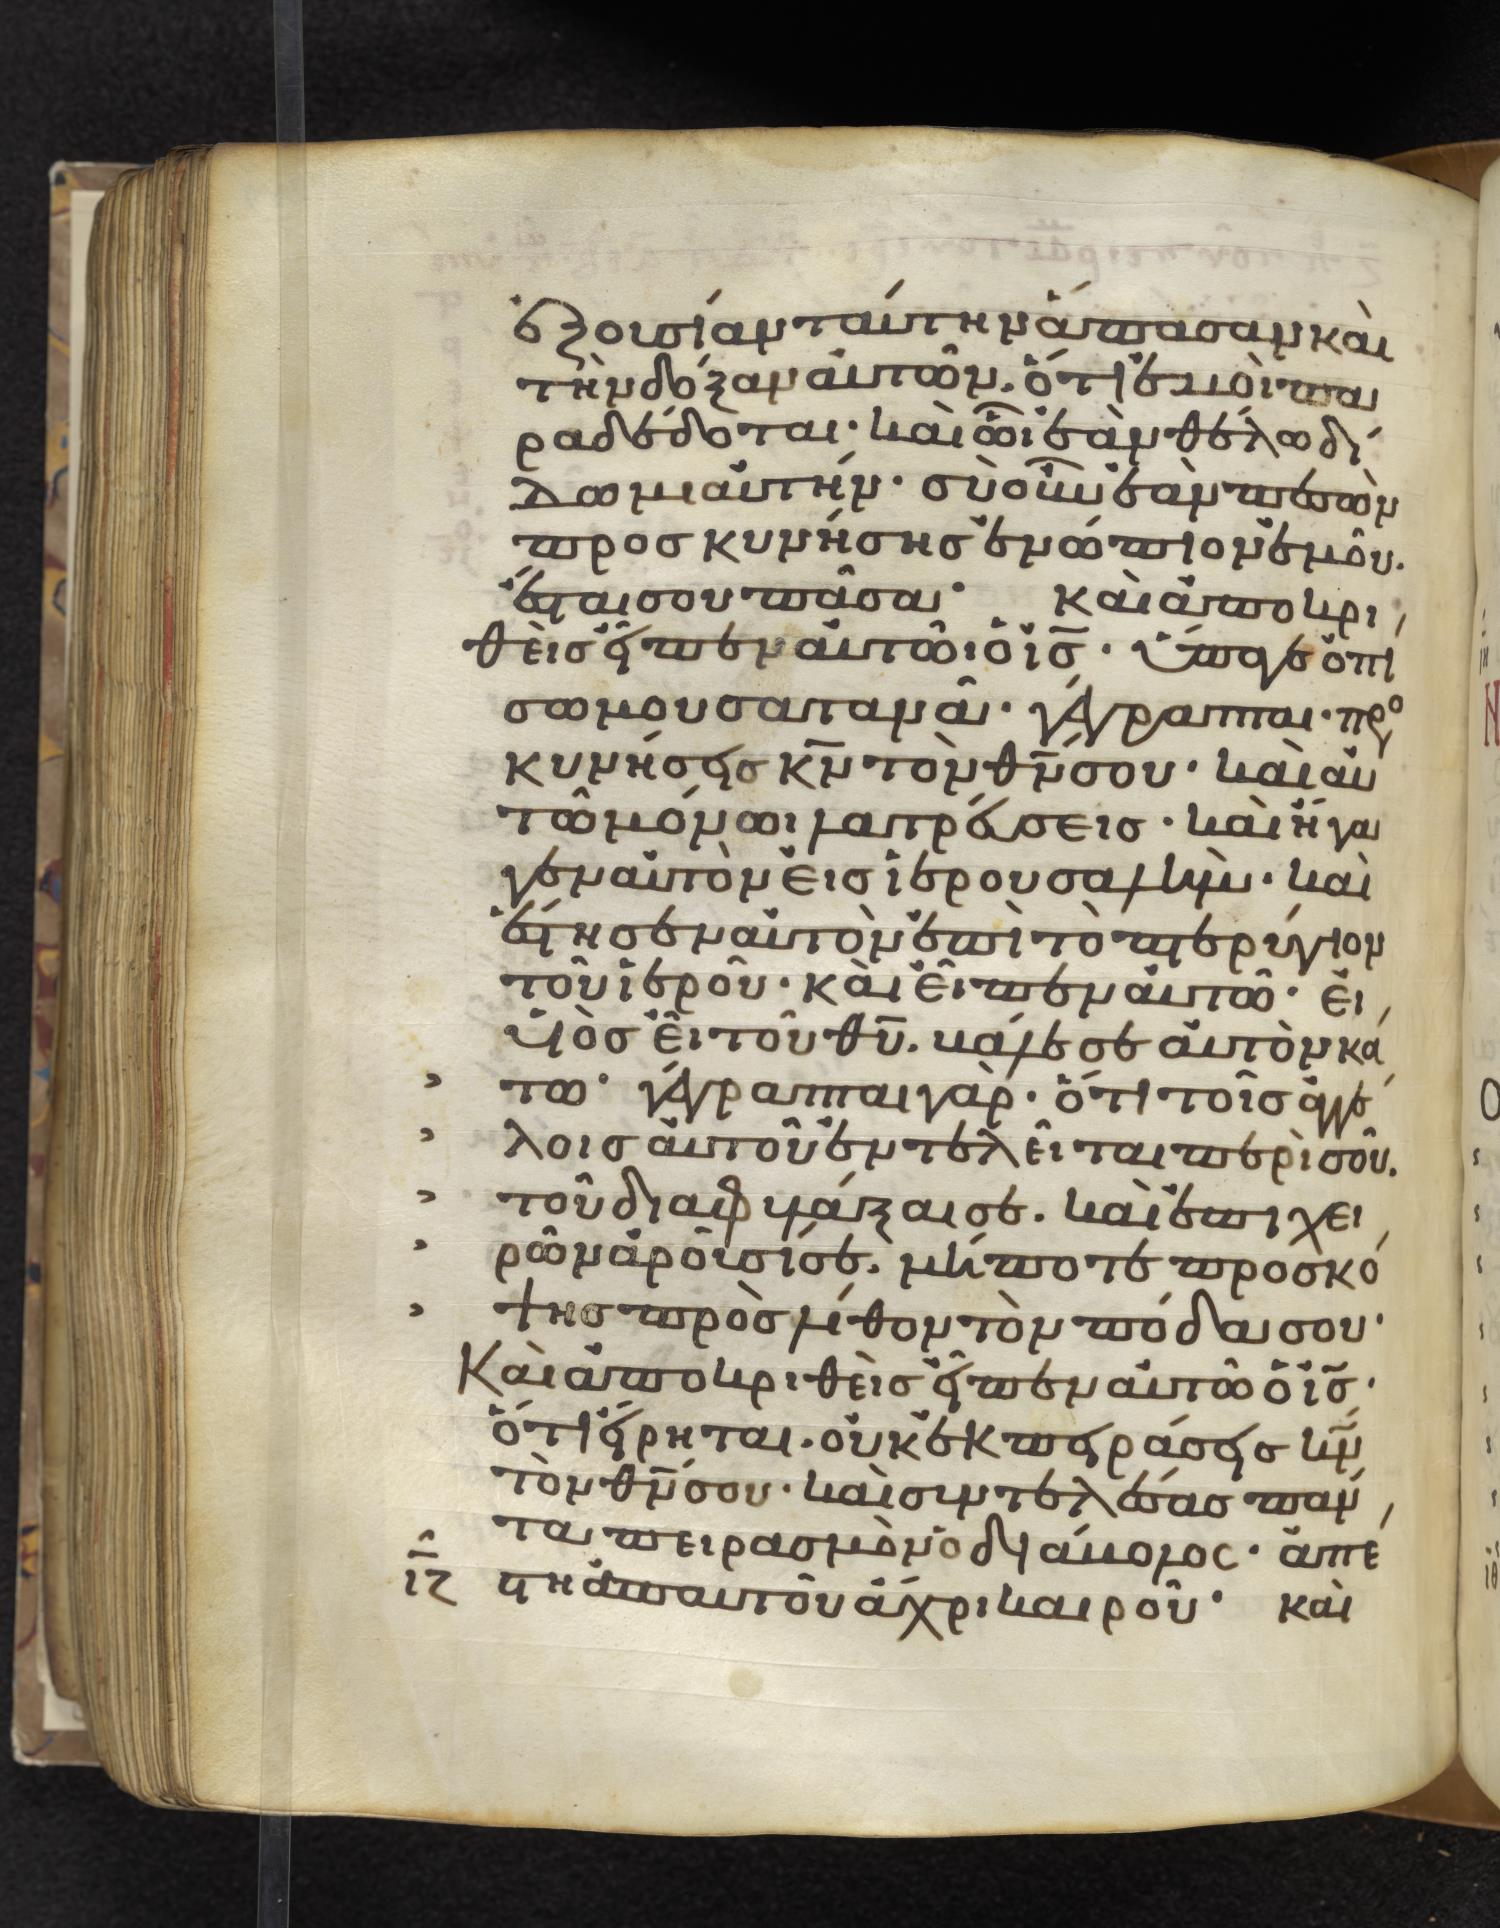 ἐξουσίαν ταύτην ἅπασαν καὶ
τὴν δόξαν αὐτῶν. ὅτι ἐμοὶ πα
ραδέδοται· καὶ ὧι ἐὰν θέλω δί
δωμι αὐτήν· σὺ οὖν ἐὰν πεσὼν
προσκυνήσης ἐνώπιον ἐμοῦ.
ἔσται σου πᾶσα· καὶ ἀποκρι
θεὶς εἶπεν αὐτῶι ὁ ἰς̅· ὕπαγε ὀπί
σω μου σατανᾶ· γέγραπται· προ
κυνήσεις κ̅ν̅ τὸν θ̅ν̅ σου· καὶ αὐ
τῶ μόνωι λατρεύσεις· καὶ ἤγα
γεν αὐτὸν εἰς ἱερουσαλήμ· καὶ
ἔστησεν αὐτὸν ἐπὶ τὸ πτερύγιον
τοῦ ἱεροῦ· καὶ εἶπεν αὐτῶ· εἰ
υἱὸς εἶ τοῦ θ̅υ̅. βάλε σε αὐτὸν κά
› τω· γέγραπται γὰρ· ὅτι τοῖς ἀγγέ
› λοις αὐτοῦ ἐντελεῖται περὶ σοῦ.
› τοῦ διαφυλάξαι σε. καὶ ἐπὶ χει
› ρῶν ἀροῦσί σε. μήποτε προσκό
› ψης πρὸς λίθον τὸν πόδα σου·
Καὶ ἀποκριθεὶς εἶπεν αὐτῶ ὁ ἰς̅·
ὅτι εἴρηται. οὐκ ἐκπειράσεις κ̅ν̅
τὸν θ̅ν̅ σου· καὶ συντελέσας πάν
τα πειρασμὸν ὁ διάβολος· ἀπέ
ι̅ζ̅ στη ἀπ αὐτοῦ ἄχρι καιροῦ· καὶ